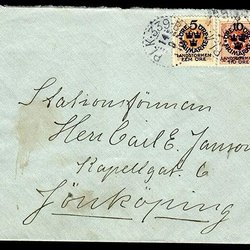 P.K.P. 39
5
10
LANDSTORMEN
FEM ÖRE
LANDSTORMEN
TIO ÖRE
Stationsförman
Herr Carl E. Janson
Kapellgat. 6
Jönköping